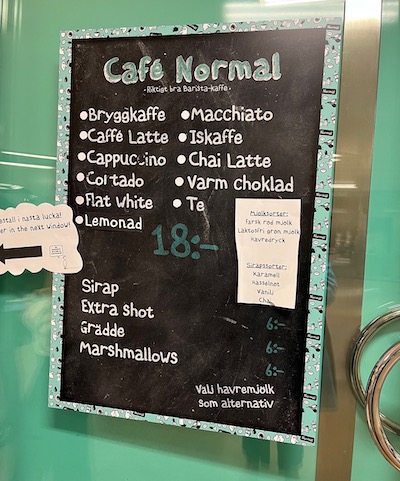 Café Normal
· Riktigt bra Barista-kaffe ·
• Bryggkaffe
• Caffé Latte
• Cappuccino
• Cortado
• Flat White
• Lemonad
• Macchiato
• Iskaffe
• Chai Latte
• Varm choklad
• Te
18:-
Mjölksorter:
färsk röd mjölk
Laktosfri grön mjölk
havredryck
Sirapssorter:
Karamell
Hasselnöt
Vanilj
Chai
Sirap
Extra shot 6:-
Grädde 6:-
Marshmallows 6:-
Välj havremjölk
som alternativ
i nästa lucka!
in the next window!